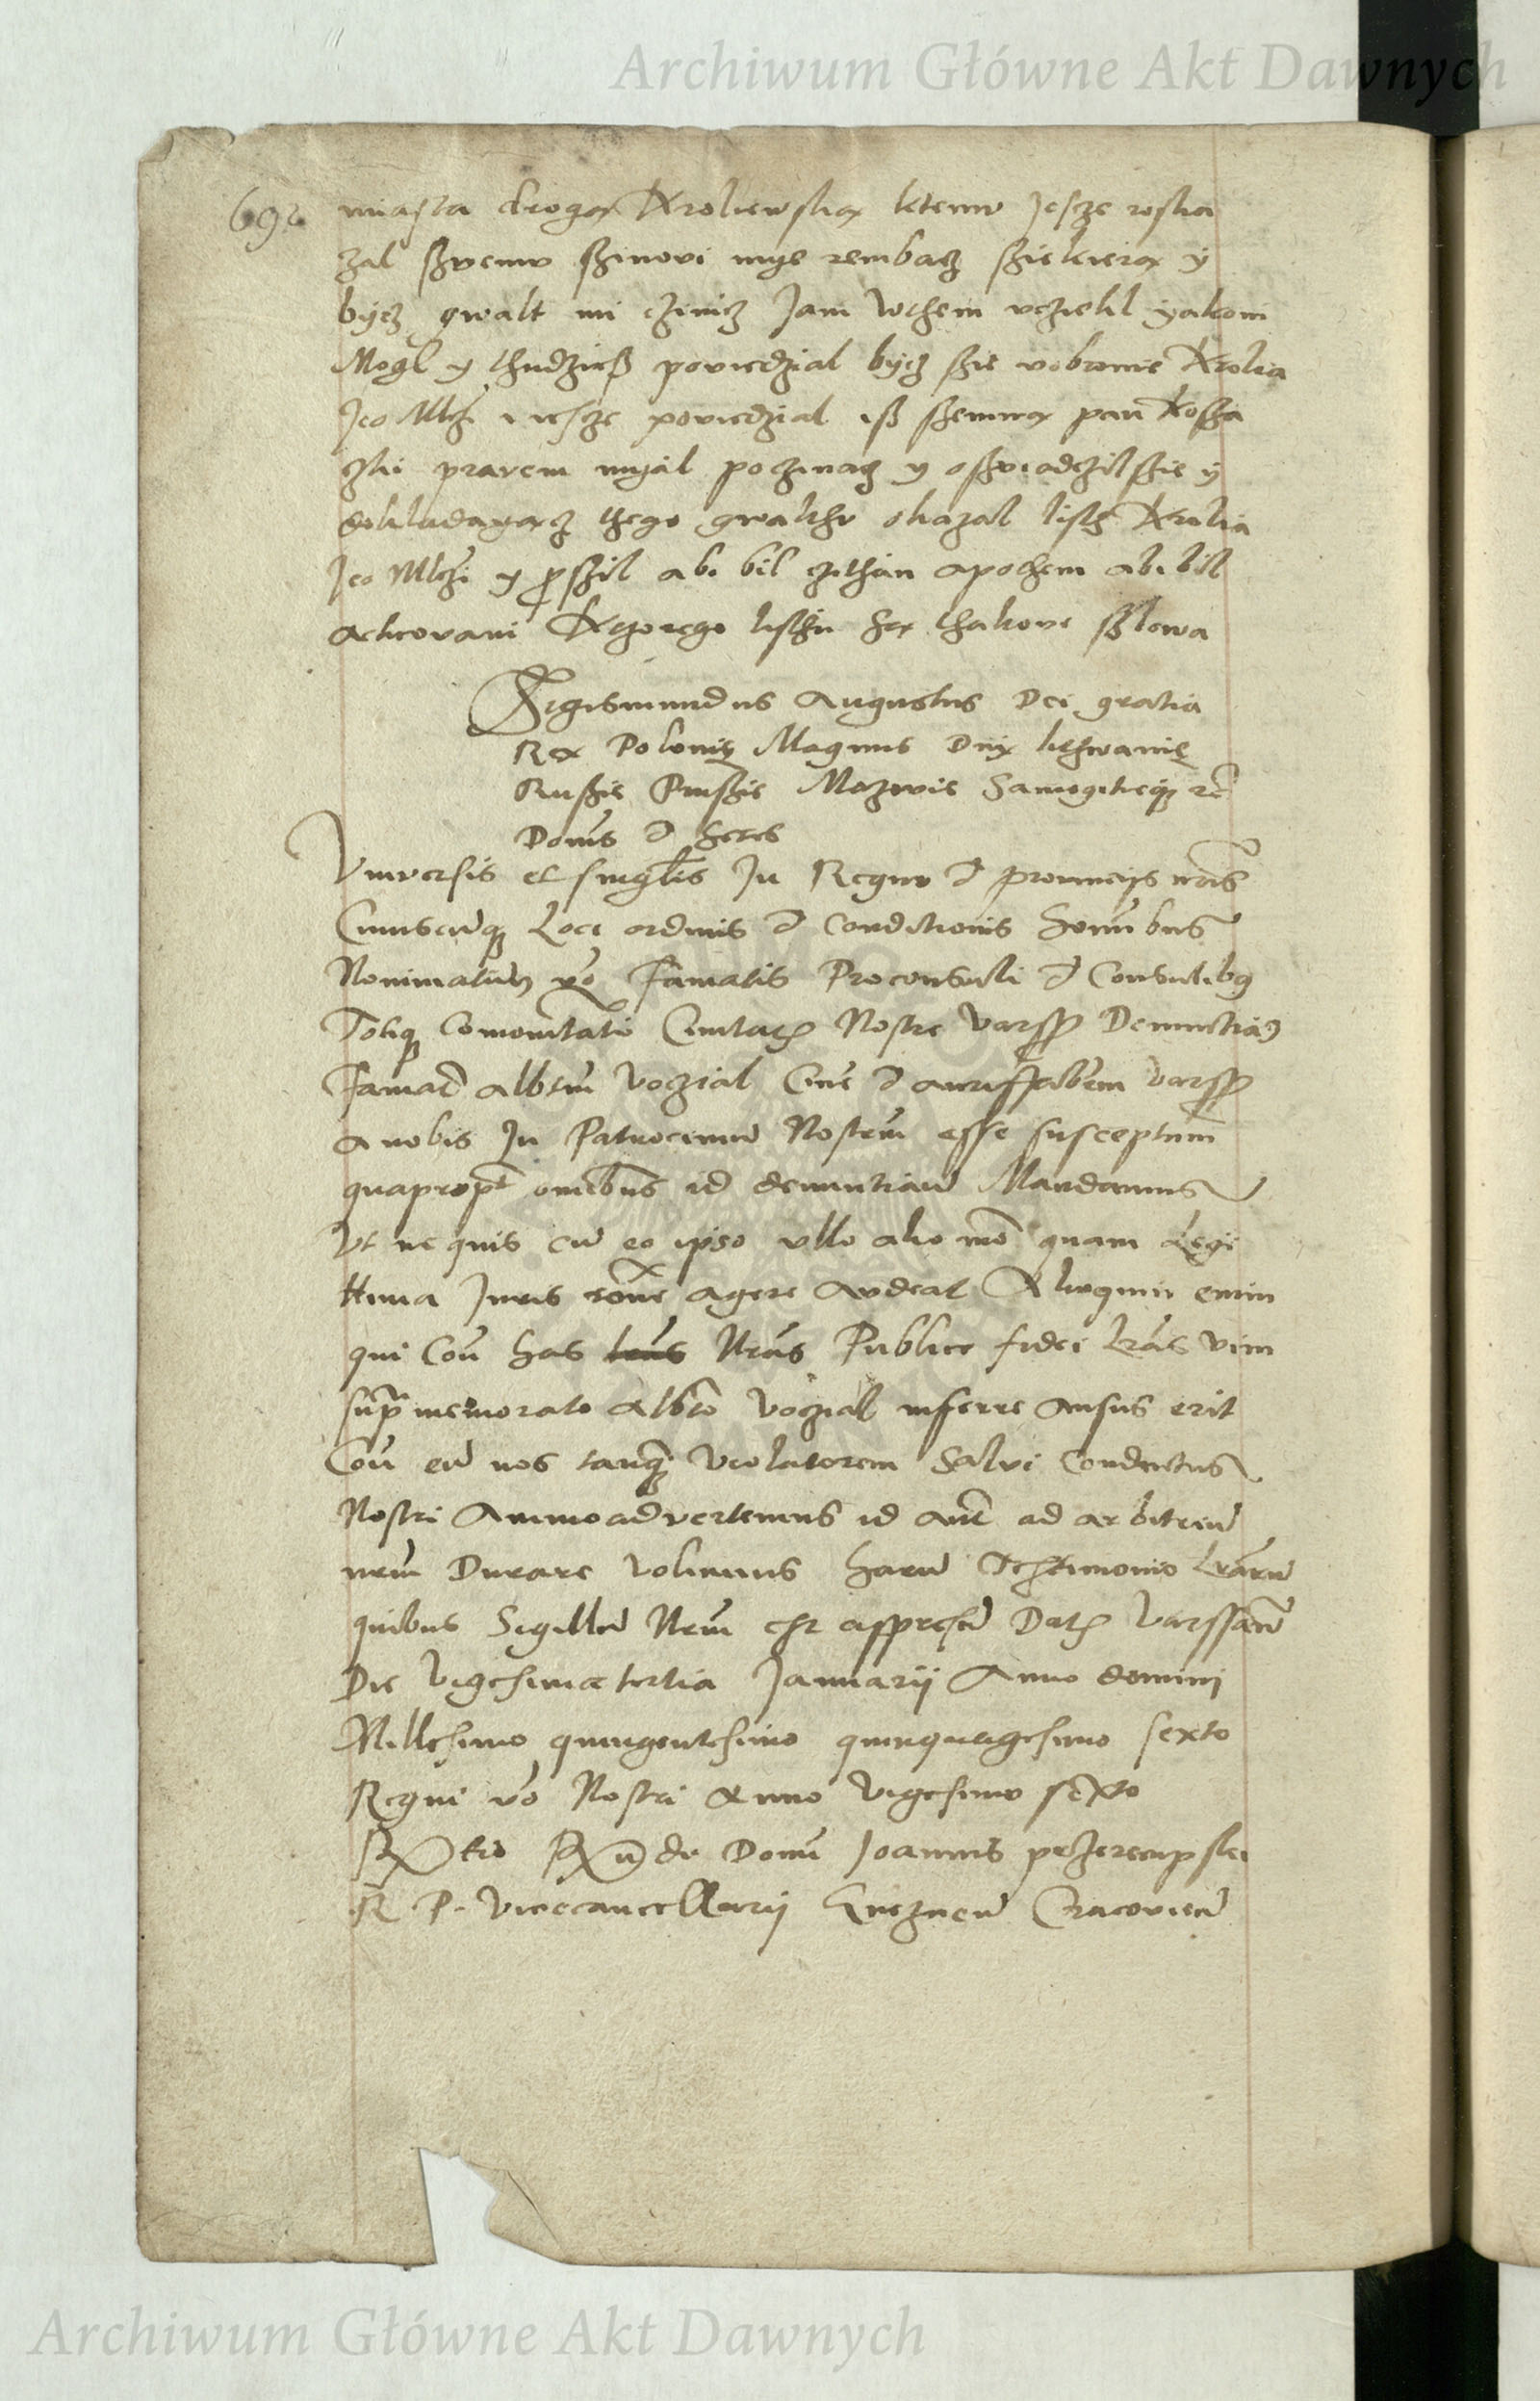 Archiwum Główne Akt Dawnych
692 miasta drogą Kroliewską ktemv Jescze roska
zal szvemv szinovi mye rembacz sziekierą y
bycz gwalt mi czinicz Jam wthem vcziekl yakom
Mogl y thudziesz poviedzial bycz szie vobronie Krolia
Jeo Mczi iescze poviedzial isz szemną pan
pravem myal poczinacz y oszviadczil szie y
thego gwalthv okazal listh Krolia
Jeo Mczi y prosził abi bil czithan apothem abi bil
acticovani Kthorego listhu są thakove szlowa
Sigismundus Augustus Dei gratia
Rex Polonię Magnus Dux lithwanię
Russie Prussie Mazovie Samogitieque etc
Domus et heres
Vniversis et singulis In Regno et provincijs nris
Cuiuscunque Loci ordinis et Conditionis hominibus
Nominatim vero Famatis Proconsuli et Consulibus
Totique Comonitati Civitatis Nostre Varss Denunctiamus
Famatum Albertum Voczial Civem et aurifabrum varss
a nobis In Patrocinium Nostrum esse susceptum
quapropter omnibus id denuntiantes Mandamus
Vt ne quis cum eo ipso vllo alio modo quam Legi
ttima Juris rone agere audeat Alioquin enim
qui Con has Nras Publice fidei Lras vim
supra memorato Alberto Voczial inferre ausus erit
Con eum nos tanquam violatorem Salvi Conductus
Nostri Animoadvertemus id aut ad arbitrium
nrum Durare volumus harum testimonio Lrarum
quibus Sigillum Nrum est appressum Datum Varssavie
Die vigesima tertia Januarij Anno domini
Millesimo quingentesimo quinquagesimo sexto
Regni vero Nostri Anno vigesimo sexto
Rtio Rndi Domini Joannis przerempski
R P. Vicecancellarij Gneznen Cracovien
Archiwum Główne Akt Dawnych